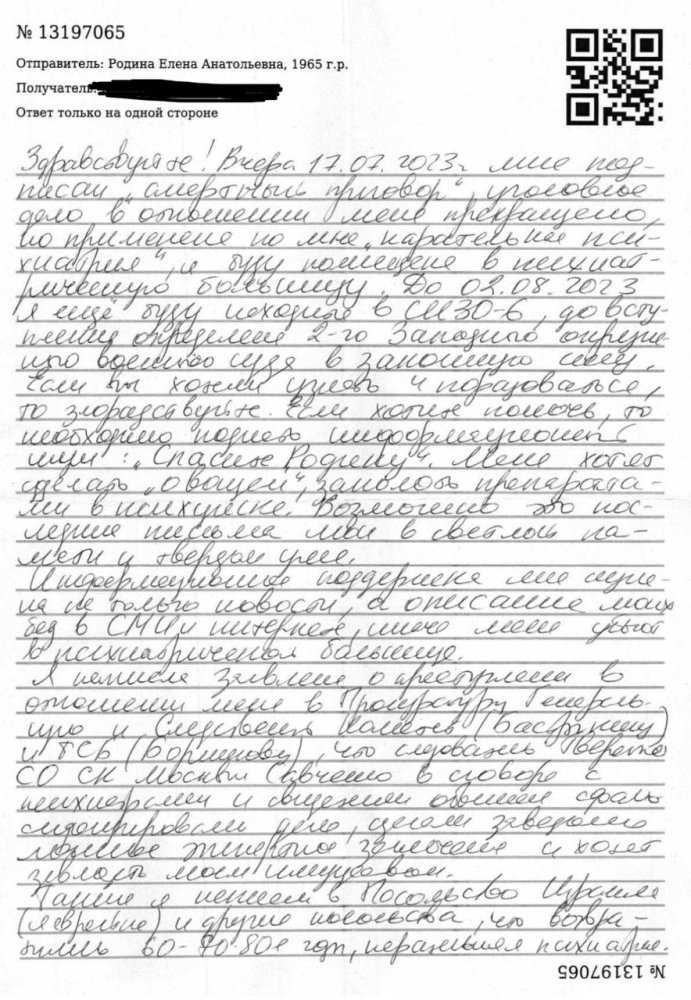 № 13197065
Отправитель: Родина Елена Анатольевна, 1965 г.р.
Получатель:
Ответ только на одной стороне
Здравствуйте! Вчера 17.07.2023г. мне под-
писан „смертный приговор", уголовное
дело в отношении меня прекращено,
но применена ко мне „карательная пси-
хиатрия", и буду помещена в психиат-
рическую больницу. До 02.08.2023
я ещё буду находиться в СИЗО-6, до всту-
пления определения 2-го Западного окруж-
ного военного суда в законную силу.
Если вы хотели узнать и порадоваться,
то злорадствуйте. Если хотите помочь, то
необходимо поднять информационный
шум: „Спасите Родину". Меня хотят
сделать „овощем", заколоть препарата-
ми в психушке. Возможно это пос-
ледние письма мои в светлой па-
мяти и твердом уме.
Информационная поддержка мне нуж-
на не только новости, а описание моих
бед в СМИ и интернете, иначе меня убьют
в психиатрической больнице.
Я написала заявления о преступлении в
отношении меня в Прокуратуру Генераль-
ную и Следственный Комитет (Бастрыкину)
и ФСБ (Бортникову), что следователь Тверского
СО СК Москвы Савченко в сговоре с
психиатрами и
дело, сделали заведомо
ложное экспертное заключение и хотят
завладеть моим имуществом.
Также я написала в Посольство Израиля
(я еврейка) и другие посольства, что возвра-
тились 60-70-80е годы, карательная психиатрия.
№ 13197065